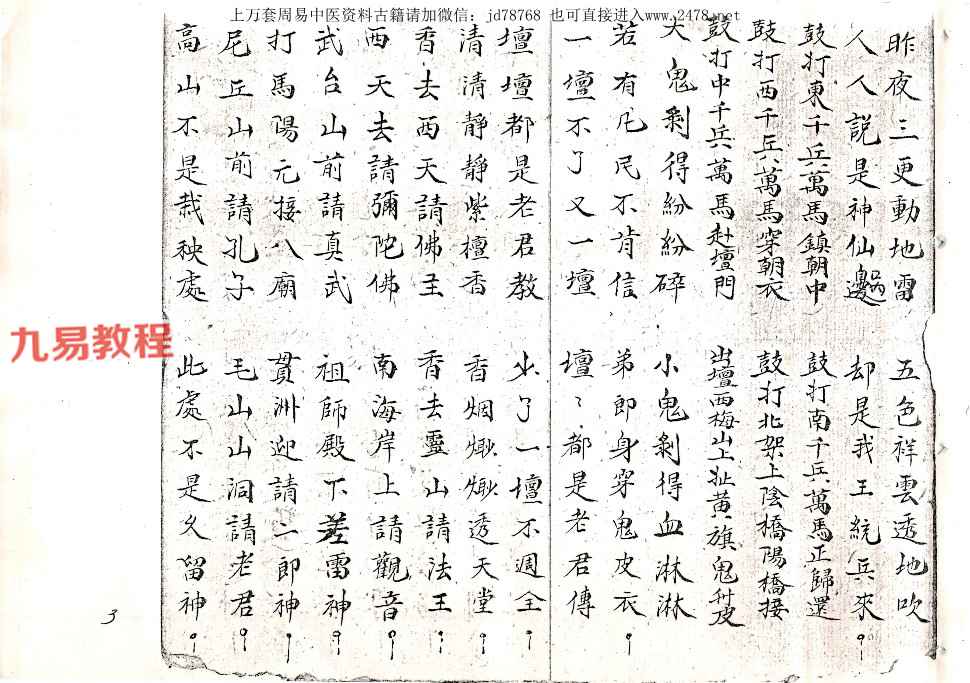 上万套周易中医资料古籍请加微信：jd78768 也可直接进入www.2478.net
昨夜三更動地雷 五色祥雲透地吹
人人說是神仙邊 却是我王統兵來
鼓打東千兵萬馬鎮朝中 鼓打南千兵萬馬正歸還
鼓打西千兵萬馬穿朝衣 鼓打北架上陰橋陽橋接
鼓打中千兵萬馬赴壇門 出壇西梅山上扯黄旗鬼
大鬼剝得紛紛碎 小鬼剝得血淋淋
若有凡民不肯信 弟郎身穿鬼皮衣
一壇不了又一壇 壇〻都是老君傳
壇壇都是老君教 少了一壇不週全
清清靜靜紫檀香 香烟透天堂
香去西天請佛主 香去靈山請法王
西天去請彌陀佛 南海岸上請觀音
武台山前請真武 祖師殿下差雷神
打馬陽元接八廟 貫洲迎請二郎神
尼丘山前請孔子 毛山山洞請老君
高山不是栽秧處 此處不是久留神
九易教程
3